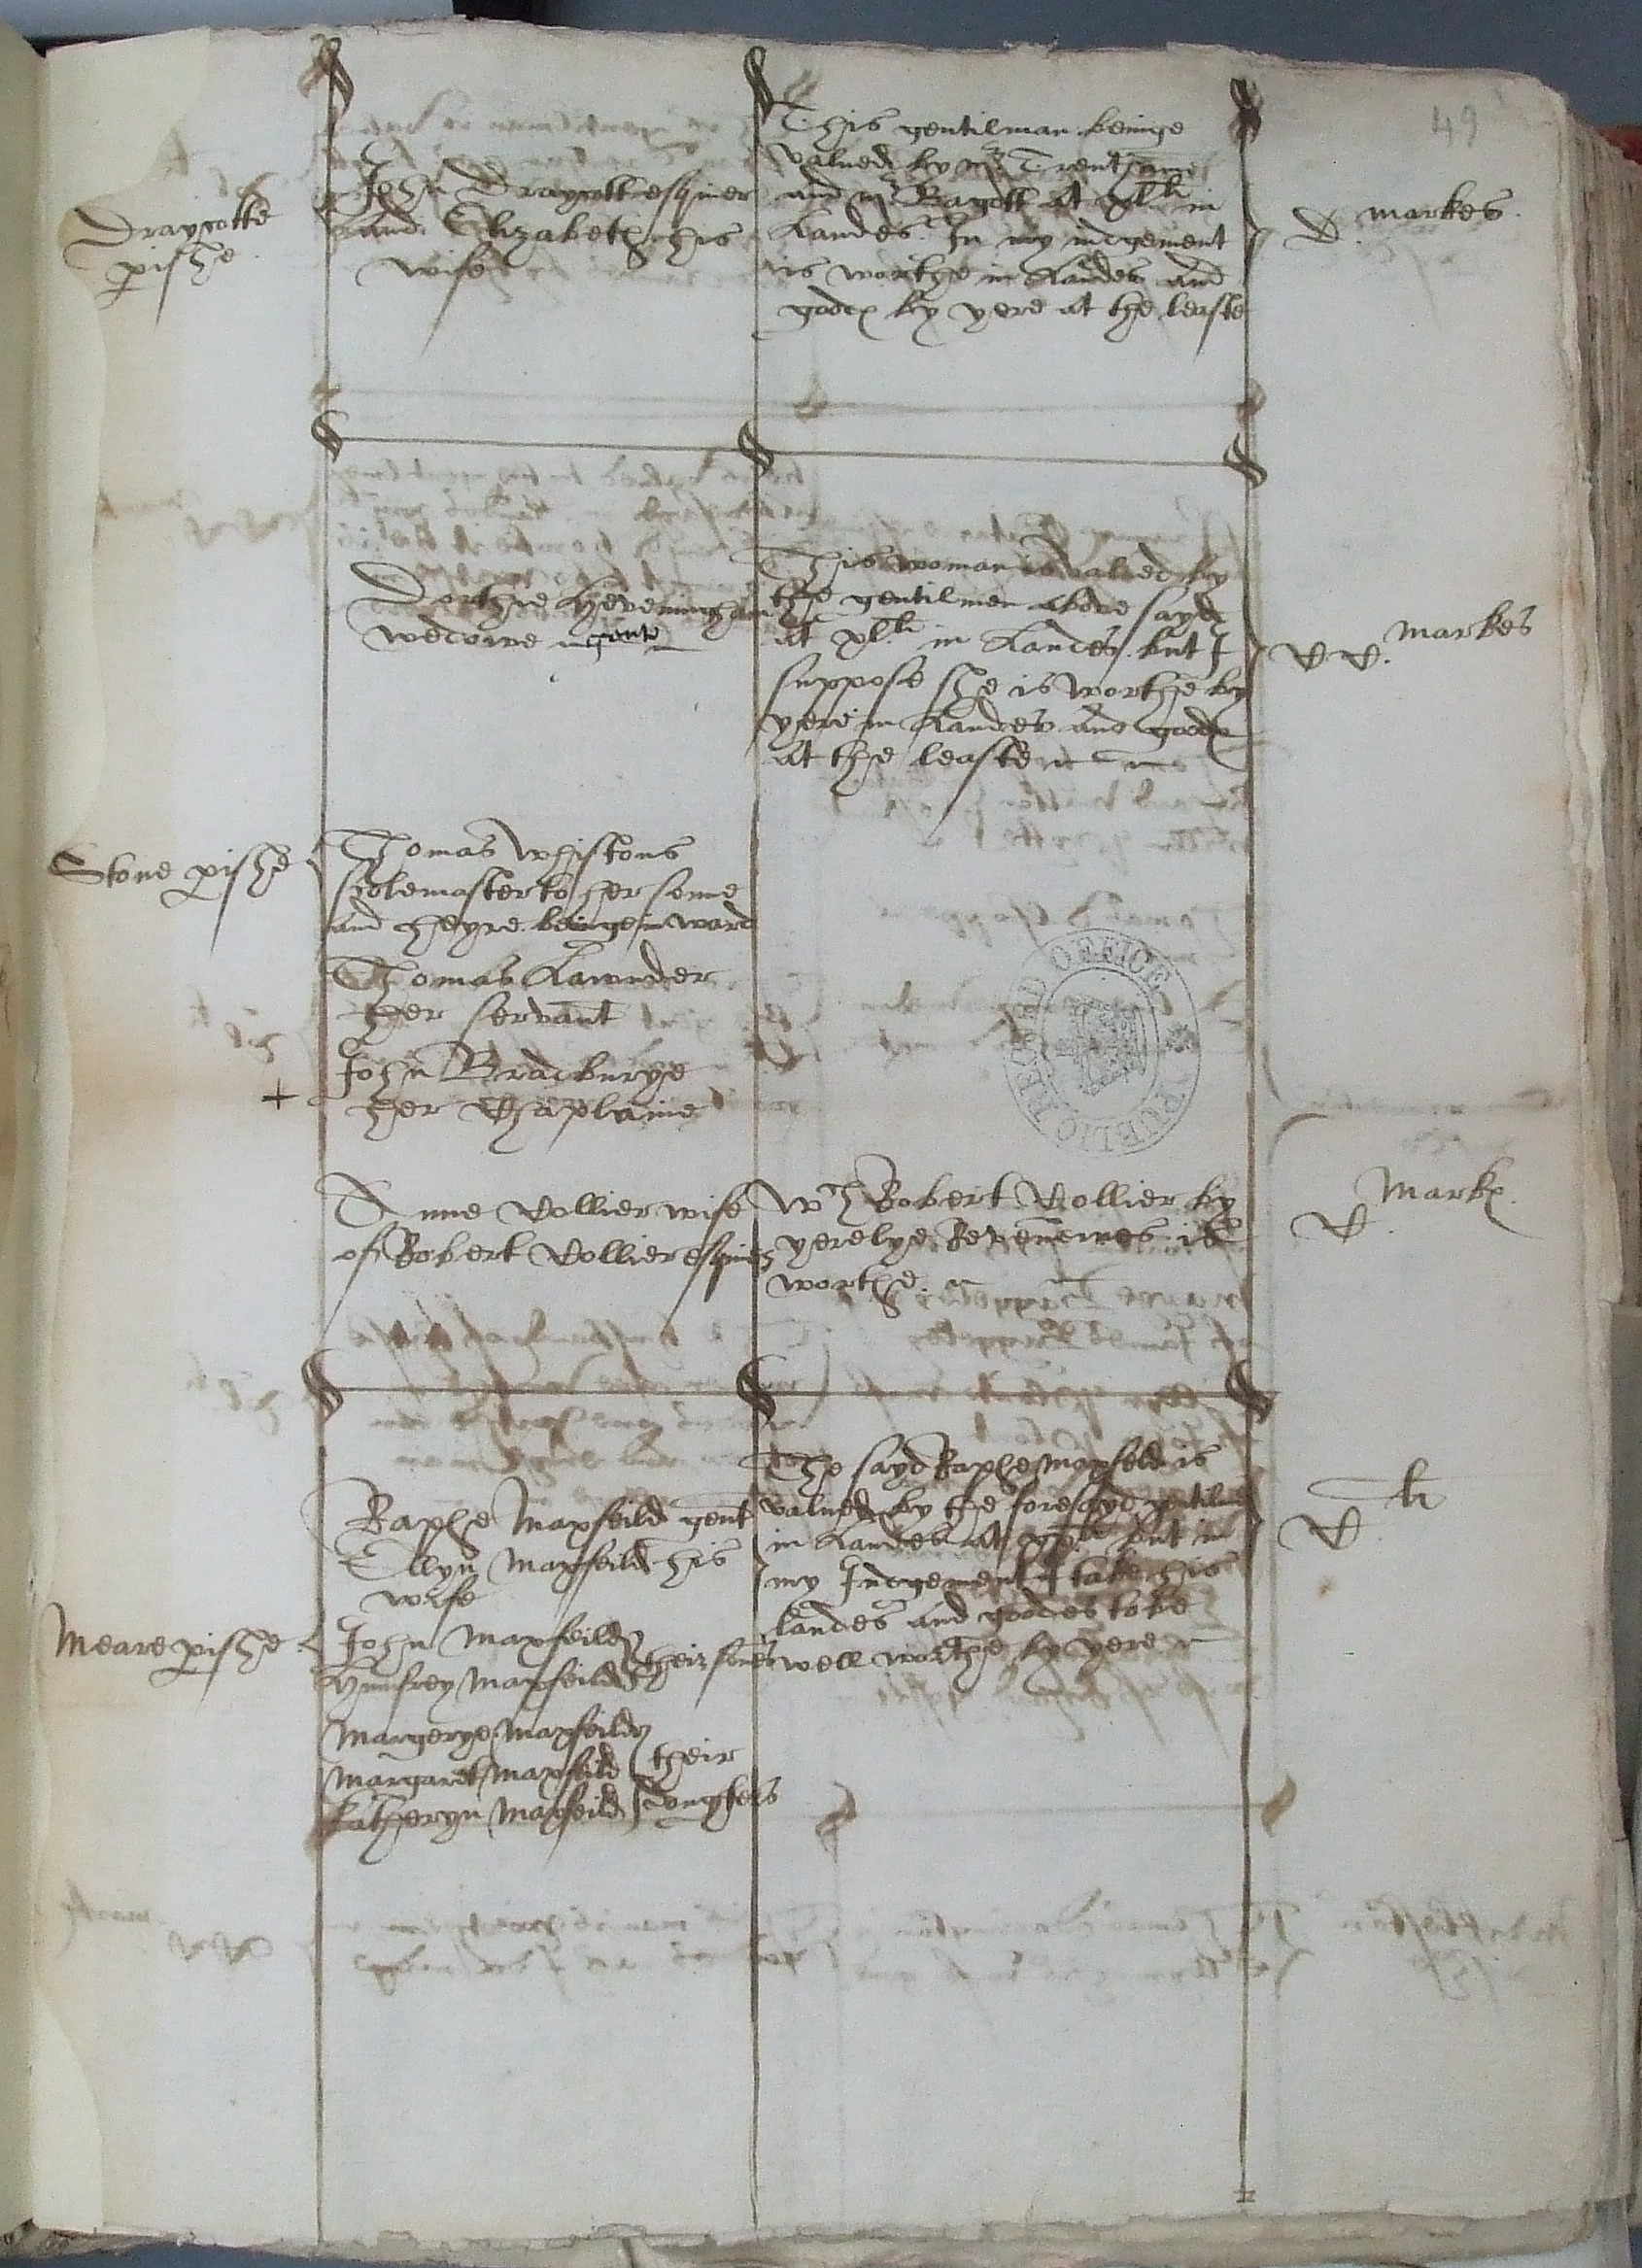 49
Draycotte
pishe
John Draycott esquier
and Elizabeth his
wife
This gentilman beinge
valued by mr Trentame
and mr Bagott at xlli in
Landes. In my iudgement
is worthe in Landes and
goodes by yere at the leaste
D. markes.
Stone pishe
Dorthie Heveningham
wedowe gent
This woman is valued by
the gentilmen above sayd
at xlli in Landes. but I
suppose she is worthe by
yere in Landes and goodes
at the leaste
CC. markes
Thomas Whistons
scolemaster to her sonne
and heyre beinge in ward
Thomas Lawnder
her servant
+
John Bradburye
her Chaplaine
Anne Collier wife
of Robert Collier esquier
Wch Robert Collier by
yerelye Revennewes is
worthe.
C. Markes.
Meare pishe
Raphe Maxfeild gent
Ellyn Maxfeild his
wife
John Maxfeild
Humfrey Maxfeild
their sones
Margerye Maxfeild
Margaret Maxfeild
Katheryn Maxfeild
their
doughters
The sayd Raphe Maxfeld is
valued by the foresayd gentilmen
in Landes at but in
my Iudgement I take his
Landes and goodes to be
well worthe by yere
C li
PUBLIC RECORD OFFICE